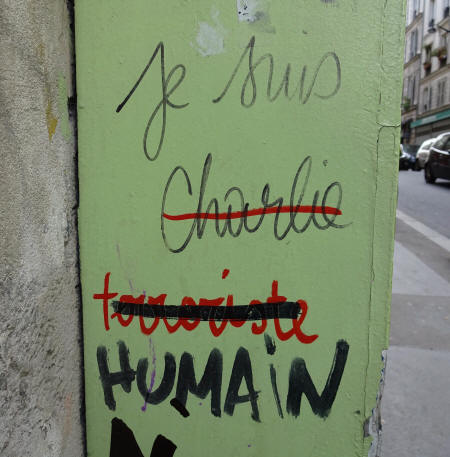 je suis
Charlie
terroriste
HUMAiN
N